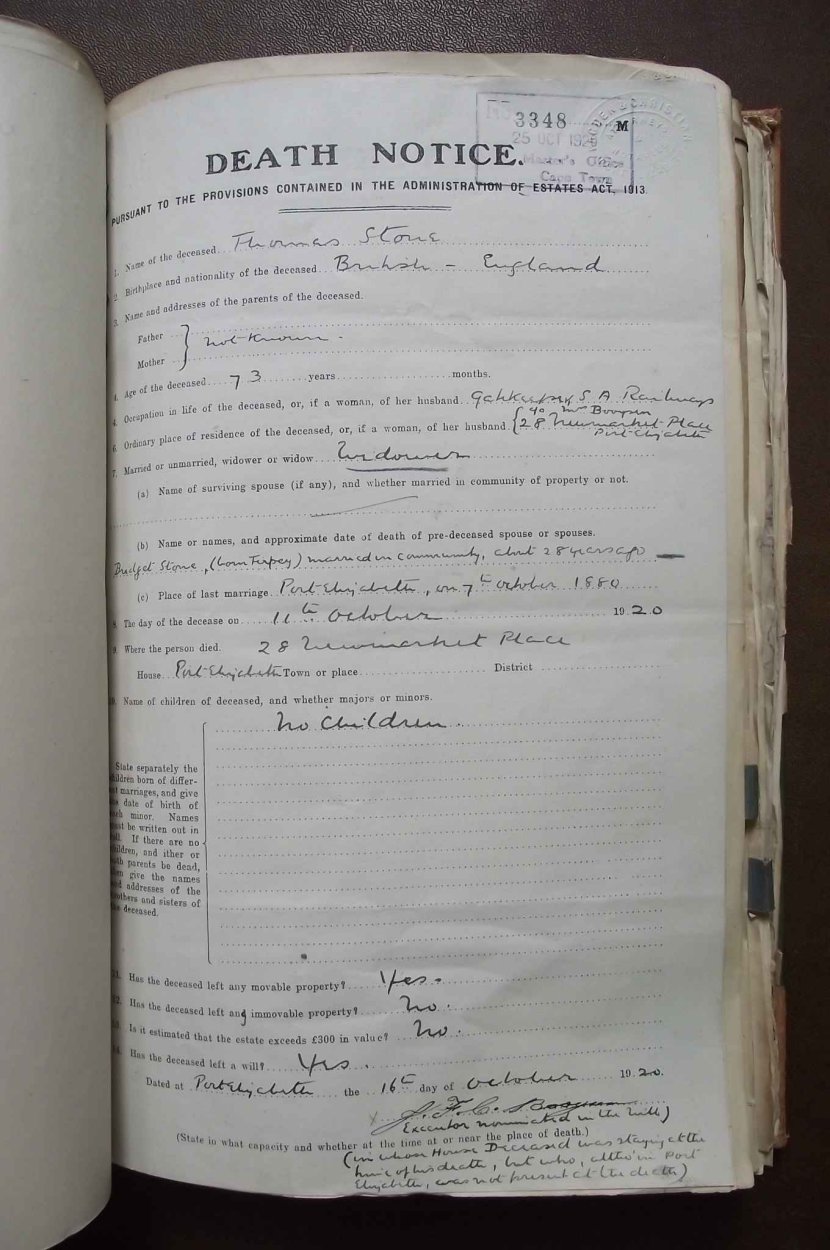 3348
M
25 OCT 1920
Master's Office
Cape Town
DEATH NOTICE.
PURSUANT TO THE PROVISIONS CONTAINED IN THE ADMINISTRATION OF ESTATES ACT, 1913.
1. Name of the deceased Thomas Stone
2. Birthplace and nationality of the deceased British - England
3. Name and addresses of the parents of the deceased.
Father
not known.
Mother
4. Age of the deceased 73 years months.
4. Occupation in life of the deceased, or, if a woman, of her husband Gatekeeper S A Railways
c/o Mr Booysen
6. Ordinary place of residence of the deceased, or, if a woman, of her husband 28 Newmarket Place
Port Elizabeth
7. Married or unmarried, widower or widow Widower
(a) Name of surviving spouse (if any), and whether married in community of property or not.
(b) Name or names, and approximate date of death of pre-deceased spouse or spouses.
Bridget Stone, (born Torpey) married in community, about 28 years ago
(c) Place of last marriage Port Elizabeth, on 7th October 1880
8. The day of the decease on 11th October 1920
9. Where the person died. 28 Newmarket Place
House Port Elizabeth Town or place District
10. Name of children of deceased, and whether majors or minors.
No Children.
State separately the
children born of differ-
ent marriages, and give
the date of birth of
each minor. Names
must be written out in
full. If there are no
children, and ither or
both parents be dead,
then give the names
and addresses of the
brothers and sisters of
the deceased.
11. Has the deceased left any movable property? Yes.
12. Has the deceased left any immovable property? No.
13. Is it estimated that the estate exceeds £300 in value? No.
14. Has the deceased left a will? Yes.
Dated at Port Elizabeth the 16th day of October 1920.
J. F. C. Booysen
Executor nominated in the Will)
(State in what capacity and whether at the time at or near the place of death.)
(in whose House Deceased was staying at the
time of his death, but who, altho' in Port
Elizabeth, was not present at the death)